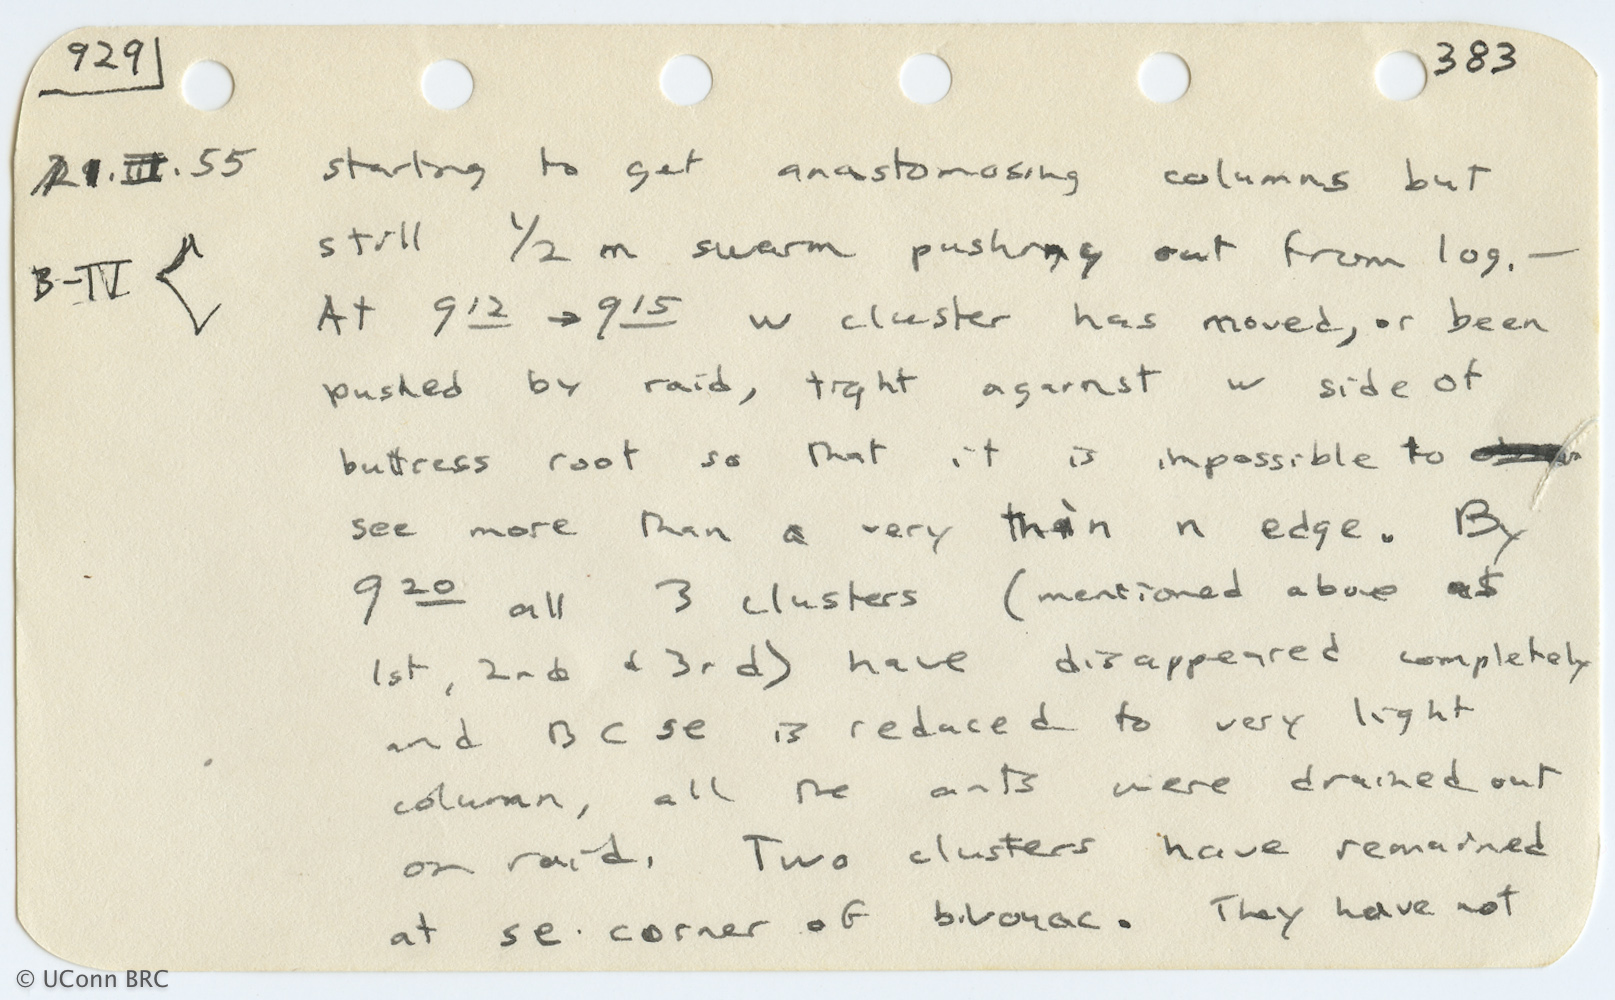 929 383
21.III.55 starting to get anastomosing columns but
still 1/2 m swarm pushing out from log. —
B-IV < At 9 12 → 9 15 w cluster has moved, or been
pushed by raid, tight against w side of
buttress root so that it is impossible to
see more than a very thin n edge. By
9 20 all 3 clusters (mentioned above as
1st, 2nd & 3rd) have disappeared completely
and BC se is reduced to very light
column, all the ants were drained out
on raid. Two clusters have remained
at se. corner of bivouac. They have not
© UConn BRC